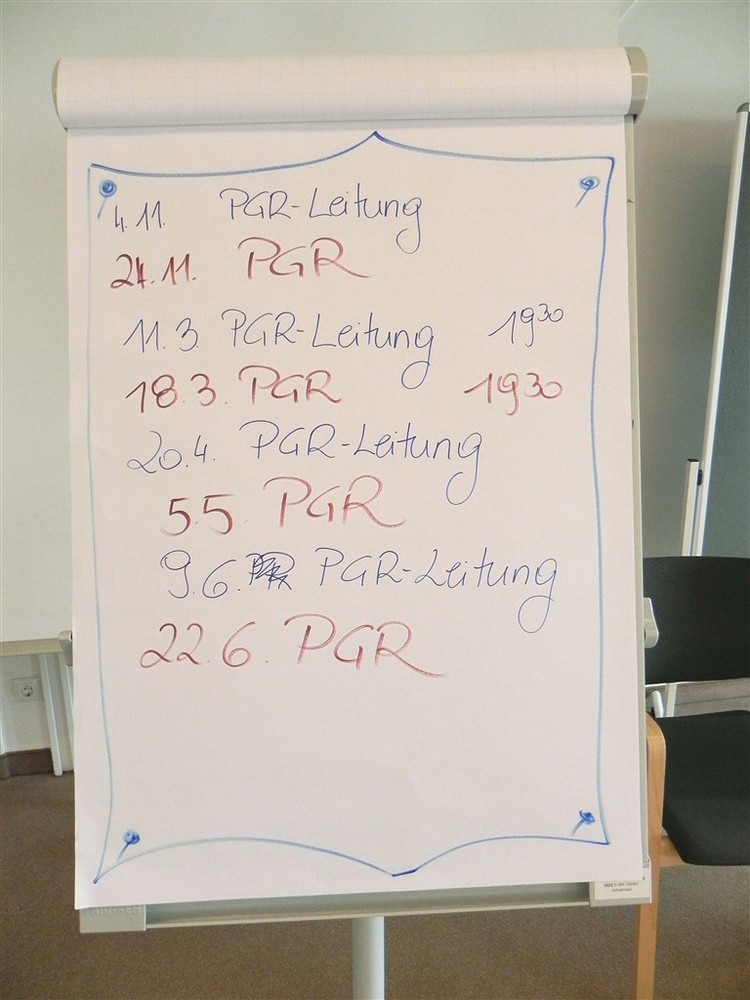 4.11. PGR-Leitung
24.11. PGR
11.3 PGR-Leitung 19³⁰
18.3. PGR 19³⁰
20.4. PGR-Leitung
5.5 PGR
9.6. PGR-Leitung
22.6. PGR